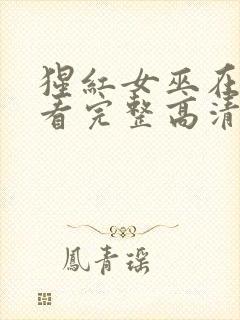 猩红女巫在
看完整高清
鳳青瑶